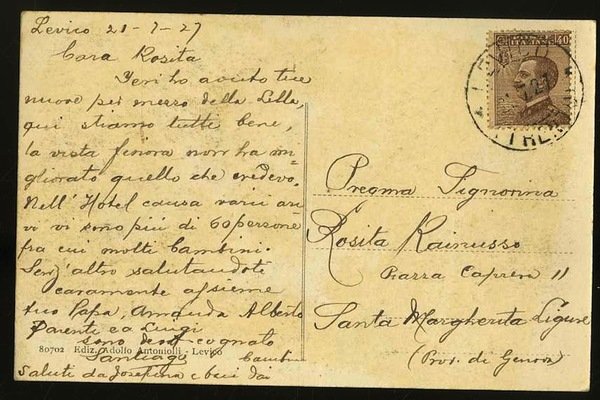 Levico 21-7-27
Cara Rosita
Ieri ho avuto tue
nuove per mezzo della Lilla,
qui stiamo tutti bene,
la vista finora non ha mi-
gliorato quello che credevo.
Nell'Hotel causa varii arri
vi vi sono più di 60 persone
fra cui molti bambini.
Senz'altro salutandoti
caramente assieme
tuo Papà, Amanda Alberto
Parente ea Luigi
sono tuo cognato
Santiago
bambini
Saluti da Josefina e baci dai
80702 Ediz. Adolfo Antoniolli - Levico
40
LEVICO
7.27
(TRENTO)
Pregma Signorina
Rosita Rainusso
Piazza Caprera 11
Santa Margherita Ligure
(Prov. di Genova)